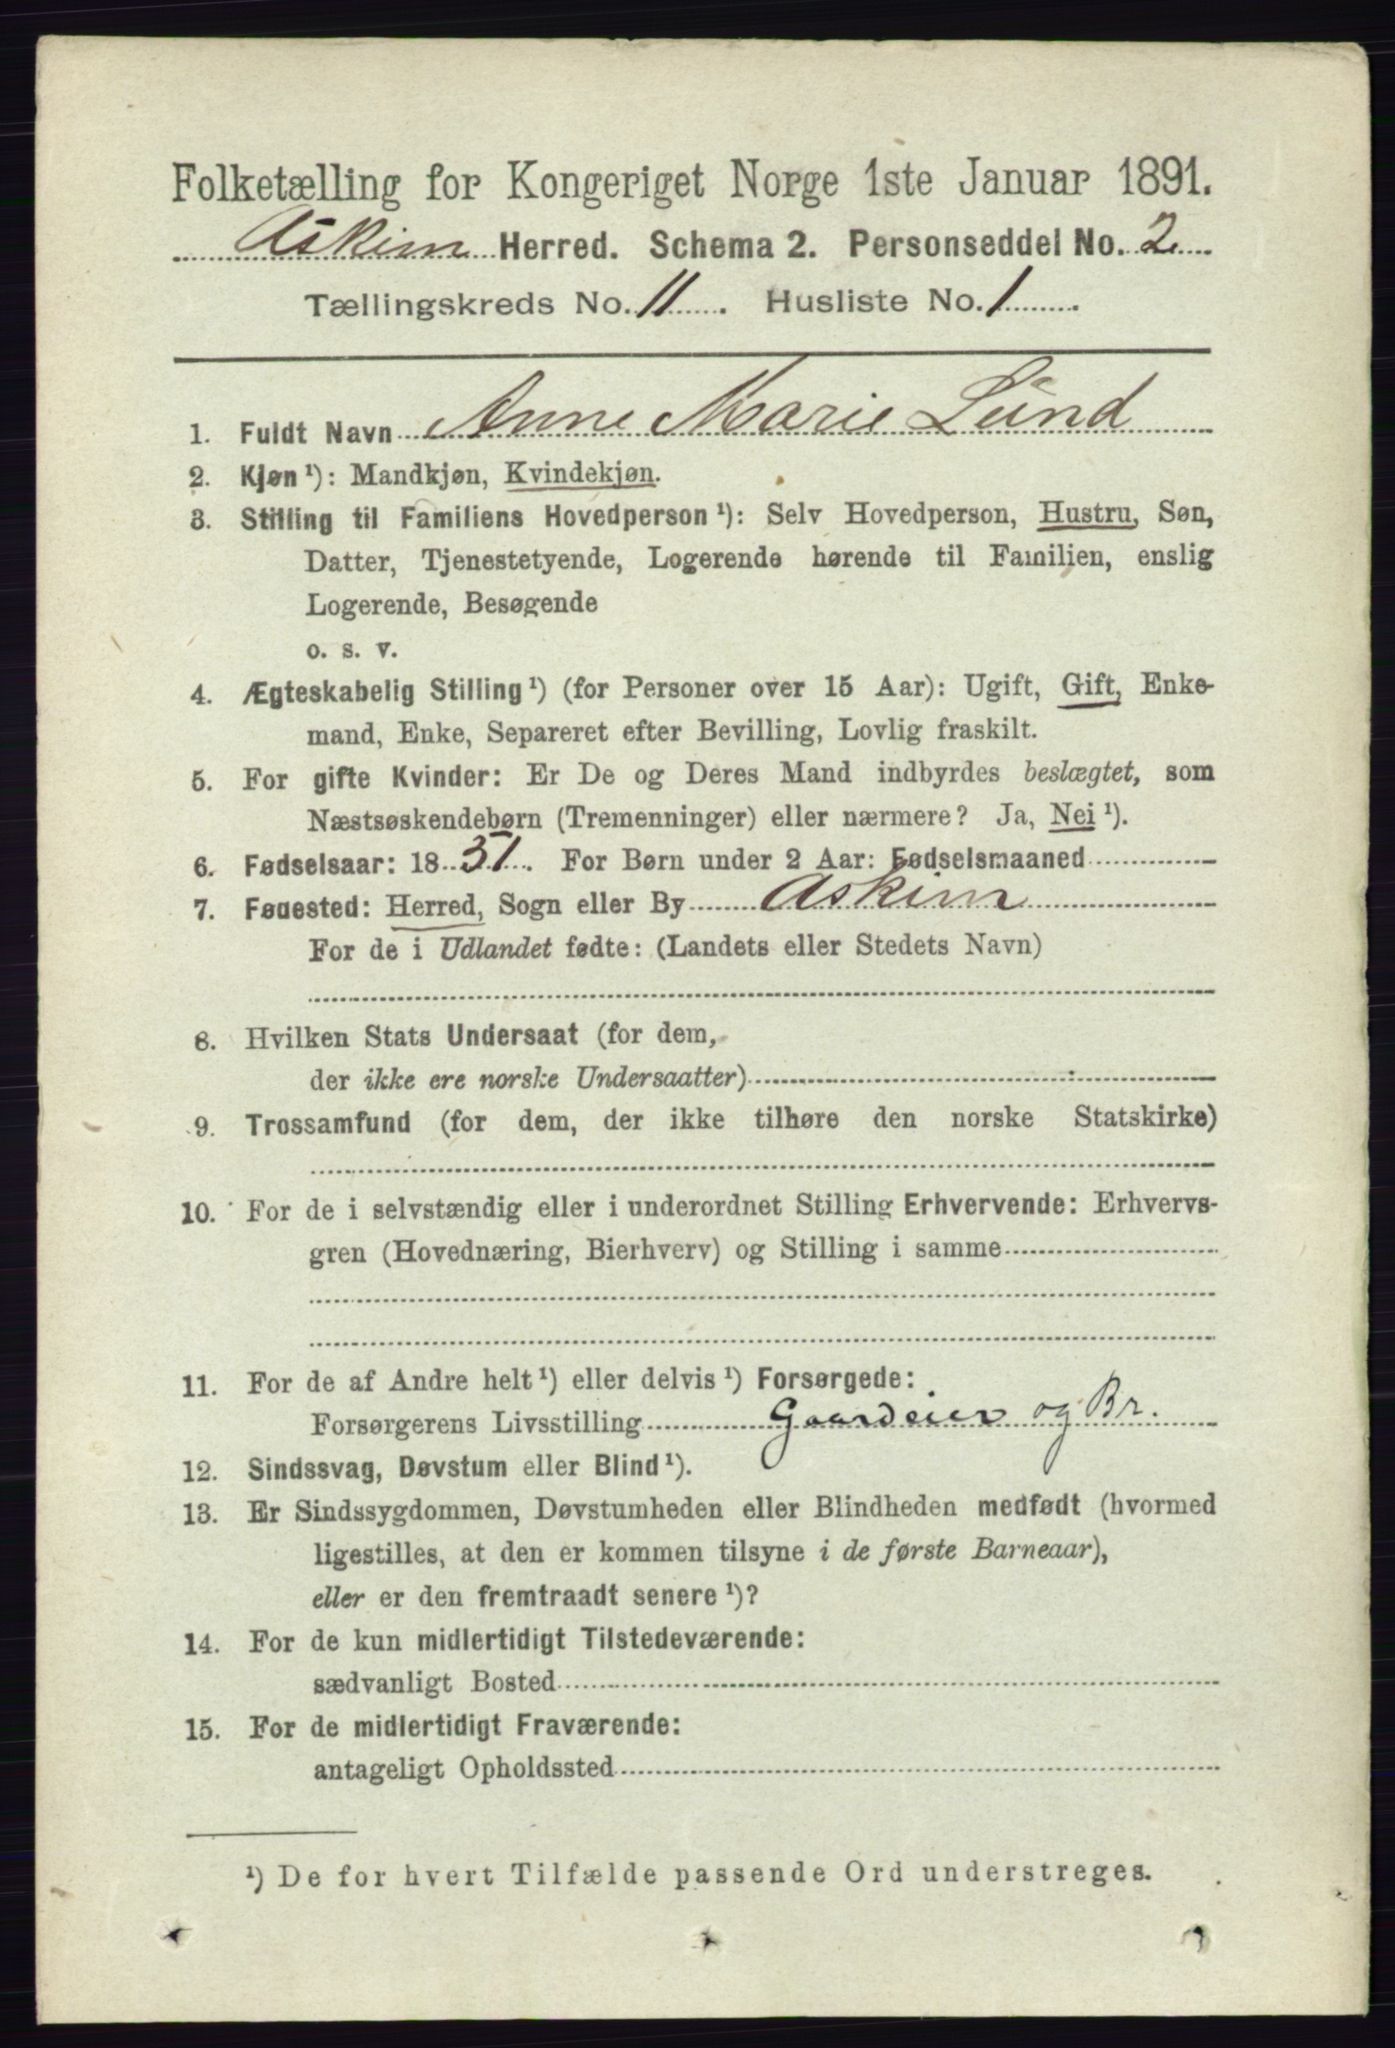 Folketælling for Kongeriget Norge 1ste Januar 1891.
Askim Herred. Schema 2. Personseddel No. 2
Tællingskreds No. 11. Husliste No. 1.
1. Fuldt Navn Anne Marie Lund
2. Kjøn ¹): Mandkjøn, Kvindekjøn.
3. Stilling til Familiens Hovedperson ¹): Selv Hovedperson, Hustru, Søn,
Datter, Tjenestetyende, Logerende hørende til Familien, enslig
Logerende, Besøgende
o. s. v.
4. Ægteskabelig Stilling ¹) (for Personer over 15 Aar): Ugift, Gift, Enke-
mand, Enke, Separeret efter Bevilling, Lovlig fraskilt.
5. For gifte Kvinder: Er De og Deres Mand indbyrdes beslægtet, som
Næstsøskendebørn (Tremenninger) eller nærmere? Ja, Nei ¹).
6. Fødselsaar: 1851. For Børn under 2 Aar: Fødselsmaaned
7. Fødested: Herred, Sogn eller By Askim
For de i Udlandet fødte: (Landets eller Stedets Navn)
8. Hvilken Stats Undersaat (for dem,
der ikke ere norske Undersaatter)
9. Trossamfund (for dem, der ikke tilhøre den norske Statskirke)
10. For de i selvstændig eller i underordnet Stilling Erhvervende: Erhvervs-
gren (Hovednæring, Bierhverv) og Stilling i samme
11. For de af Andre helt ¹) eller delvis ¹) Forsørgede:
Forsørgerens Livsstilling Gaardeier og Br.
12. Sindssvag, Døvstum eller Blind ¹).
13. Er Sindssygdommen, Døvstumheden eller Blindheden medfødt (hvormed
ligestilles, at den er kommen tilsyne i de første Barneaar),
eller er den fremtraadt senere ¹)?
14. For de kun midlertidigt Tilstedeværende:
sædvanligt Bosted
15. For de midlertidigt Fraværende:
antageligt Opholdssted
¹) De for hvert Tilfælde passende Ord understreges.